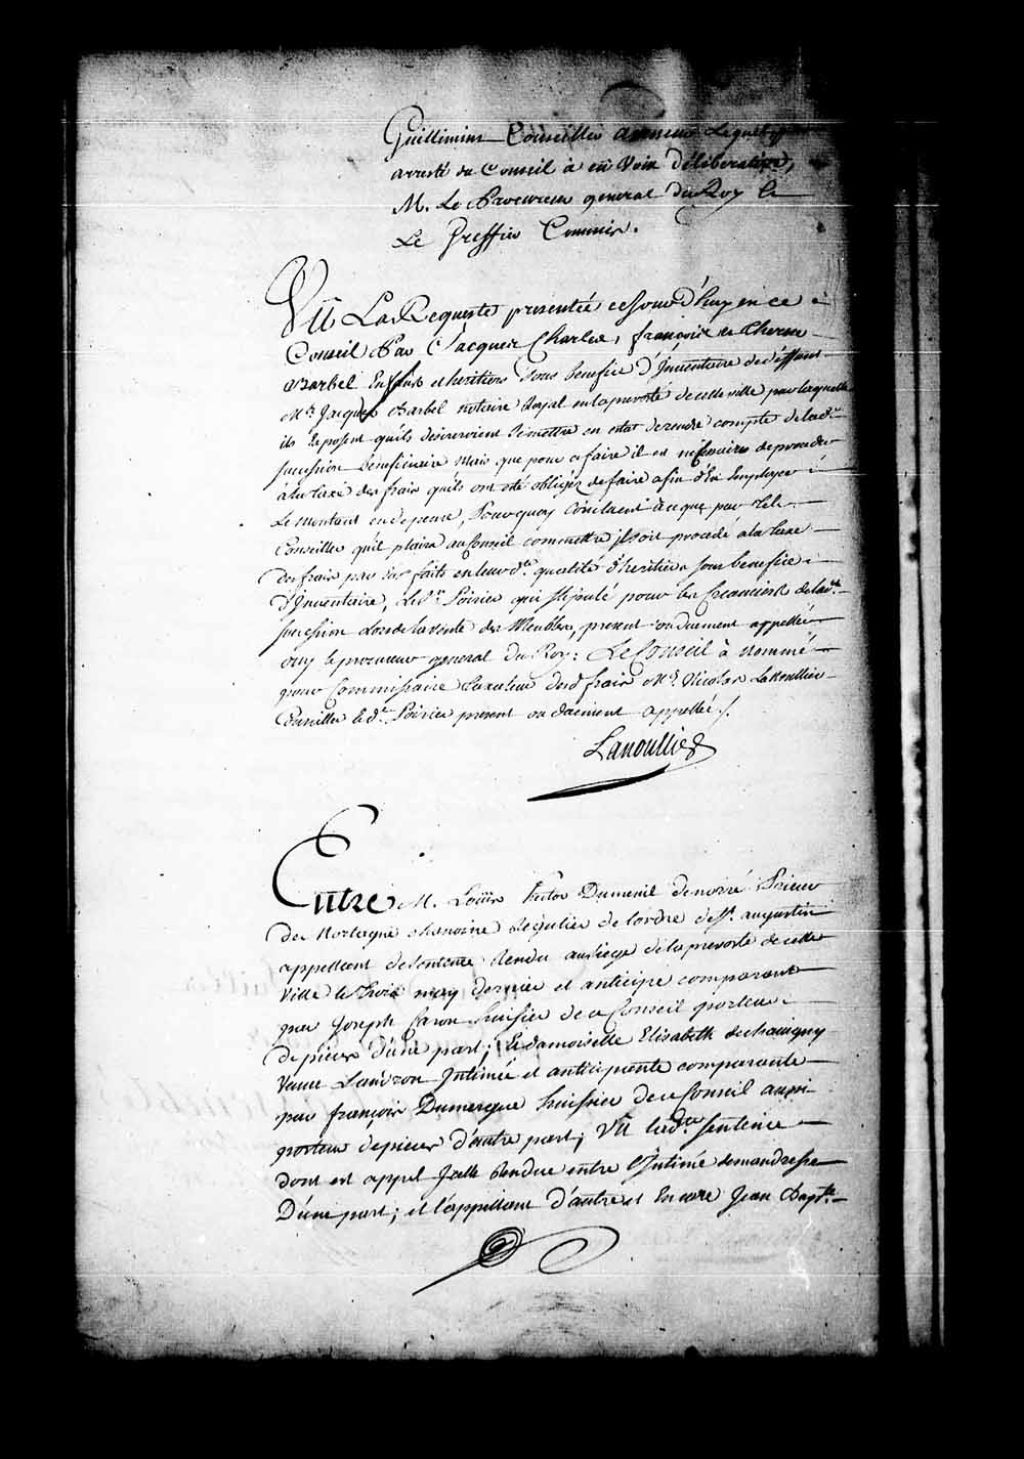 Guillimin Conseiller
arresté du Conseil à eû Voix déliberative,
M. Le Procureur general Du Roy &
Le Greffier Commis.
Vû La Requeste presentée ce Jourd'huy en ce
Conseil Par Jacques Charles, françois et Therese
Barbel Enfans et heritiers sous benefice d'Inventaire de deffunt
Me. Jacques Barbel notaire Royal en la prevosté de cette ville par laquelle
ils exposent qu'ils desireroient se mettre en etat de rendre compte de lade.
succession beneficiaire Mais que pour ce faire il est necessaire de proceder
à la taxe des frais qu'ils ont été obligés de faire afin d'En Employer
Le Montant en depense, Pourquoy
Conseiller qu'il plaira au Conseil commettre il soit procedé a la taxe
des frais par eux faits en leur de. qualité d'heritiers sous benefice
d'Inventaire, Le Sr. Poirier qui stipulé pour les Creanciers de lade.
succession lors de la vente des Meubles, present ou duement appellé
ouy le procureur general Du Roy: Le Conseil à nommé
pour Commissaire Taxateur desd. frais Me. Nicolas Lanoullier
Conseiller led. Sr. Poirier present ou duement appellé ./.
Lanoullier
Entre M. Loüis hector Dumenil denorré Prieur
de Mortagne chanoine Regulier de lordre de St. augustin
appellant de sentence Rendue au siege de la prevosté de cette
Ville le trois may dernier et anticipé comparant
par Joseph Caron huissier de ce Conseil porteur
de pieces d'une part; Et damoiselle Elisabeth de chavigny
Veuve Landron Intimée et anticipante comparante
par françois Dumergue huissier de ce Conseil aussi
porteur de pieces d'autre part; Vû lade. sentence
dont est appel Icelle Rendue entre l'Intimée demanderesse
D'une part; et l'appellant d'autre et Encore Jean Bapte.